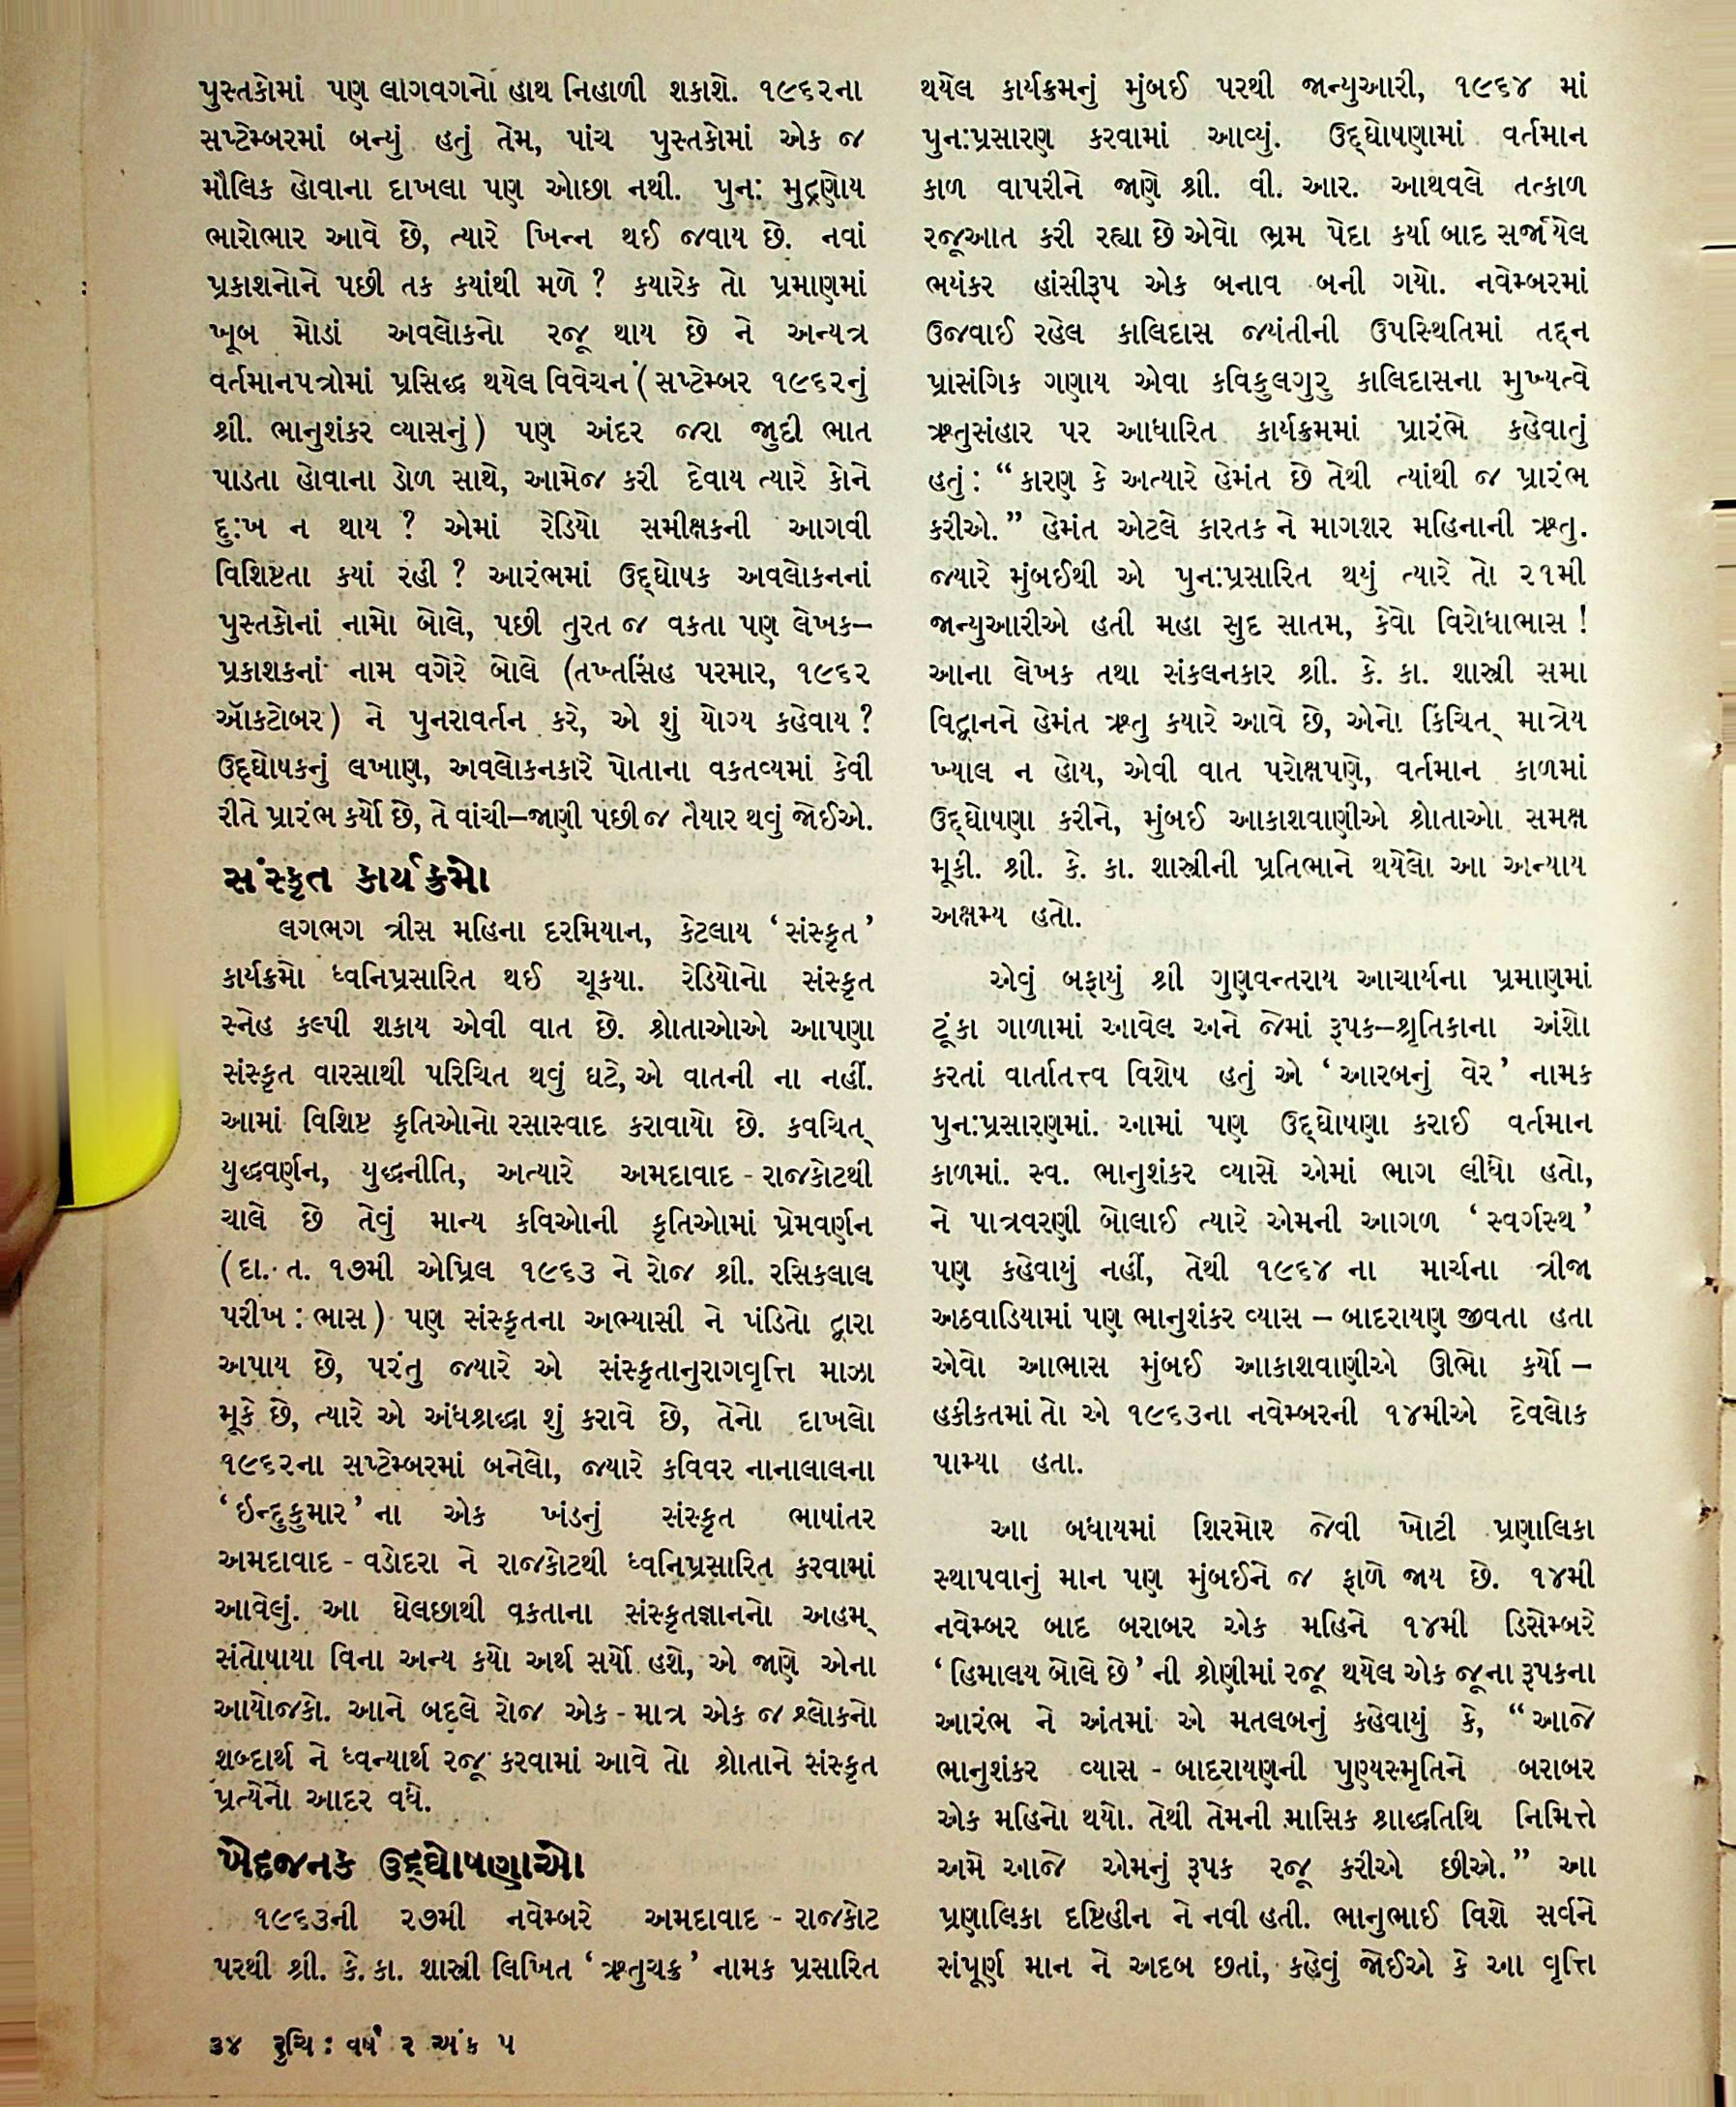 પુસ્તકોમાં પણ લાગવગનો હાથ નિહાળી શકાશે. ૧૯૬૨ના
સપ્ટેમ્બરમાં બન્યું હતું તેમ, પાંચ પુસ્તકોમાં એક જ
મૌલિક હોવાના દાખલા પણ ઓછા નથી. પુનઃ મુદ્રણોય
ભારોભાર આવે છે, ત્યારે ખિન્ન થઈ જવાય છે. નવાં
પ્રકાશનોને પછી તક કયાંથી મળે ? કયારેક તો પ્રમાણમાં
ખૂબ મોડાં અવલોકનો રજૂ થાય છે ને અન્યત્ર
વર્તમાનપત્રોમાં પ્રસિદ્ધ થયેલ વિવેચન (સપ્ટેમ્બર ૧૯૬૨નું
શ્રી. ભાનુશંકર વ્યાસનું) પણ અંદર જરા જુદી ભાત
પાડતા હોવાના ડોળ સાથે, આમેજ કરી દેવાય ત્યારે કોને
દુઃખ ન થાય ? એમાં રેડિયો સમીક્ષકની આગવી
વિશિષ્ટતા કયાં રહી ? આરંભમાં ઉદ્‌ઘોષક અવલોકનનાં
પુસ્તકોનાં નામો બોલે, પછી તુરત જ વકતા પણ લેખક–
પ્રકાશકનાં નામ વગેરે બોલે (તખ્તસિંહ પરમાર, ૧૯૬૨
ઑકટોબર) ને પુનરાવર્તન કરે, એ શું યોગ્ય કહેવાય ?
ઉદ્‌ઘોષકનું લખાણ, અવલોકનકારે પોતાના વકતવ્યમાં કેવી
રીતે પ્રારંભ કર્યો છે, તે વાંચી–જાણી પછી જ તૈયાર થવું જોઈએ.
સંસ્કૃત કાર્યક્રમો
લગભગ ત્રીસ મહિના દરમિયાન, કેટલાય ‘સંસ્કૃત’
કાર્યક્રમો ધ્વનિપ્રસારિત થઈ ચૂકયા. રેડિયોનો સંસ્કૃત
સ્નેહ કલ્પી શકાય એવી વાત છે. શ્રોતાઓએ આપણા
સંસ્કૃત વારસાથી પરિચિત થવું ઘટે, એ વાતની ના નહીં.
આમાં વિશિષ્ટ કૃતિઓનો રસાસ્વાદ કરાવાયો છે. કવચિત્
યુદ્ધવર્ણન, યુદ્ધનીતિ, અત્યારે અમદાવાદ - રાજકોટથી
ચાલે છે તેવું માન્ય કવિઓની કૃતિઓમાં પ્રેમવર્ણન
(દા. ત. ૧૭મી એપ્રિલ ૧૯૬૩ ને રોજ શ્રી. રસિકલાલ
પરીખ : ભાસ) પણ સંસ્કૃતના અભ્યાસી ને પંડિતો દ્વારા
અપાય છે, પરંતુ જ્યારે એ સંસ્કૃતાનુરાગવૃત્તિ માઝા
મૂકે છે, ત્યારે એ અંધશ્રદ્ધા શું કરાવે છે, તેનો દાખલો
૧૯૬૨ના સપ્ટેમ્બરમાં બનેલો, જ્યારે કવિવર નાનાલાલના
‘ઈન્દુકુમાર’ ના એક ખંડનું સંસ્કૃત ભાષાંતર
અમદાવાદ - વડોદરા ને રાજકોટથી ધ્વનિપ્રસારિત કરવામાં
આવેલું. આ ઘેલછાથી વકતાના સંસ્કૃતજ્ઞાનનો અહમ્
સંતોષાયા વિના અન્ય કયો અર્થ સર્યો હશે, એ જાણે એના
આયોજકો. આને બદલે રોજ એક - માત્ર એક જ શ્લોકનો
શબ્દાર્થ ને ધ્વન્યાર્થ રજૂ કરવામાં આવે તો શ્રોતાને સંસ્કૃત
પ્રત્યેનો આદર વધે.
ખેદજનક ઉદ્‌ઘોષણાઓ
૧૯૬૩ની ૨૭મી નવેમ્બરે અમદાવાદ - રાજકોટ
પરથી શ્રી. કે. કા. શાસ્ત્રી લિખિત ‘ઋતુચક્ર’ નામક પ્રસારિત
થયેલ કાર્યક્રમનું મુંબઈ પરથી જાન્યુઆરી, ૧૯૬૪ માં
પુનઃપ્રસારણ કરવામાં આવ્યું. ઉદ્‌ઘોષણામાં વર્તમાન
કાળ વાપરીને જાણે શ્રી. વી. આર. આથવલે તત્કાળ
રજૂઆત કરી રહ્યા છે એવો ભ્રમ પેદા કર્યા બાદ સર્જાયેલ
ભયંકર હાંસીરૂપ એક બનાવ બની ગયો. નવેમ્બરમાં
ઉજવાઈ રહેલ કાલિદાસ જયંતીની ઉપસ્થિતિમાં તદ્દન
પ્રાસંગિક ગણાય એવા કવિકુલગુરુ કાલિદાસના મુખ્યત્વે
ઋતુસંહાર પર આધારિત કાર્યક્રમમાં પ્રારંભે કહેવાતું
હતું : “કારણ કે અત્યારે હેમંત છે તેથી ત્યાંથી જ પ્રારંભ
કરીએ.” હેમંત એટલે કારતક ને માગશર મહિનાની ઋતુ.
જ્યારે મુંબઈથી એ પુનઃપ્રસારિત થયું ત્યારે તો ૨૧મી
જાન્યુઆરીએ હતી મહા સુદ સાતમ, કેવો વિરોધાભાસ !
આના લેખક તથા સંકલનકાર શ્રી. કે. કા. શાસ્ત્રી સમા
વિદ્વાનને હેમંત ઋતુ કયારે આવે છે, એનો કિંચિત્ માત્રેય
ખ્યાલ ન હોય, એવી વાત પરોક્ષપણે, વર્તમાન કાળમાં
ઉદ્‌ઘોષણા કરીને, મુંબઈ આકાશવાણીએ શ્રોતાઓ સમક્ષ
મૂકી. શ્રી. કે. કા. શાસ્ત્રીની પ્રતિભાને થયેલો આ અન્યાય
અક્ષમ્ય હતો.
એવું બફાયું શ્રી ગુણવન્તરાય આચાર્યના પ્રમાણમાં
ટૂંકા ગાળામાં આવેલ અને જેમાં રૂપક–શ્રૃતિકાના અંશો
કરતાં વાર્તાતત્ત્વ વિશેષ હતું એ ‘આરબનું વેર’ નામક
પુનઃપ્રસારણમાં. આમાં પણ ઉદ્‌ઘોષણા કરાઈ વર્તમાન
કાળમાં. સ્વ. ભાનુશંકર વ્યાસે એમાં ભાગ લીધો હતો,
ને પાત્રવરણી બોલાઈ ત્યારે એમની આગળ ‘સ્વર્ગસ્થ’
પણ કહેવાયું નહીં, તેથી ૧૯૬૪ ના માર્ચના ત્રીજા
અઠવાડિયામાં પણ ભાનુશંકર વ્યાસ – બાદરાયણ જીવતા હતા
એવો આભાસ મુંબઈ આકાશવાણીએ ઊભો કર્યો –
હકીકતમાં તો એ ૧૯૬૩ના નવેમ્બરની ૧૪મીએ દેવલોક
પામ્યા હતા.
આ બધાયમાં શિરમોર જેવી ખોટી પ્રણાલિકા
સ્થાપવાનું માન પણ મુંબઈને જ ફાળે જાય છે. ૧૪મી
નવેમ્બર બાદ બરાબર એક મહિને ૧૪મી ડિસેમ્બરે
‘હિમાલય બોલે છે’ ની શ્રેણીમાં રજૂ થયેલ એક જૂના રૂપકના
આરંભ ને અંતમાં એ મતલબનું કહેવાયું કે, “આજે
ભાનુશંકર વ્યાસ - બાદરાયણની પુણ્યસ્મૃતિને બરાબર
એક મહિનો થયો. તેથી તેમની માસિક શ્રાદ્ધતિથિ નિમિત્તે
અમે આજે એમનું રૂપક રજૂ કરીએ છીએ.” આ
પ્રણાલિકા દષ્ટિહીન ને નવી હતી. ભાનુભાઈ વિશે સર્વને
સંપૂર્ણ માન ને અદબ છતાં, કહેવું જોઈએ કે આ વૃત્તિ
૩૪ રુચિ : વર્ષ ૨ અંક ૫